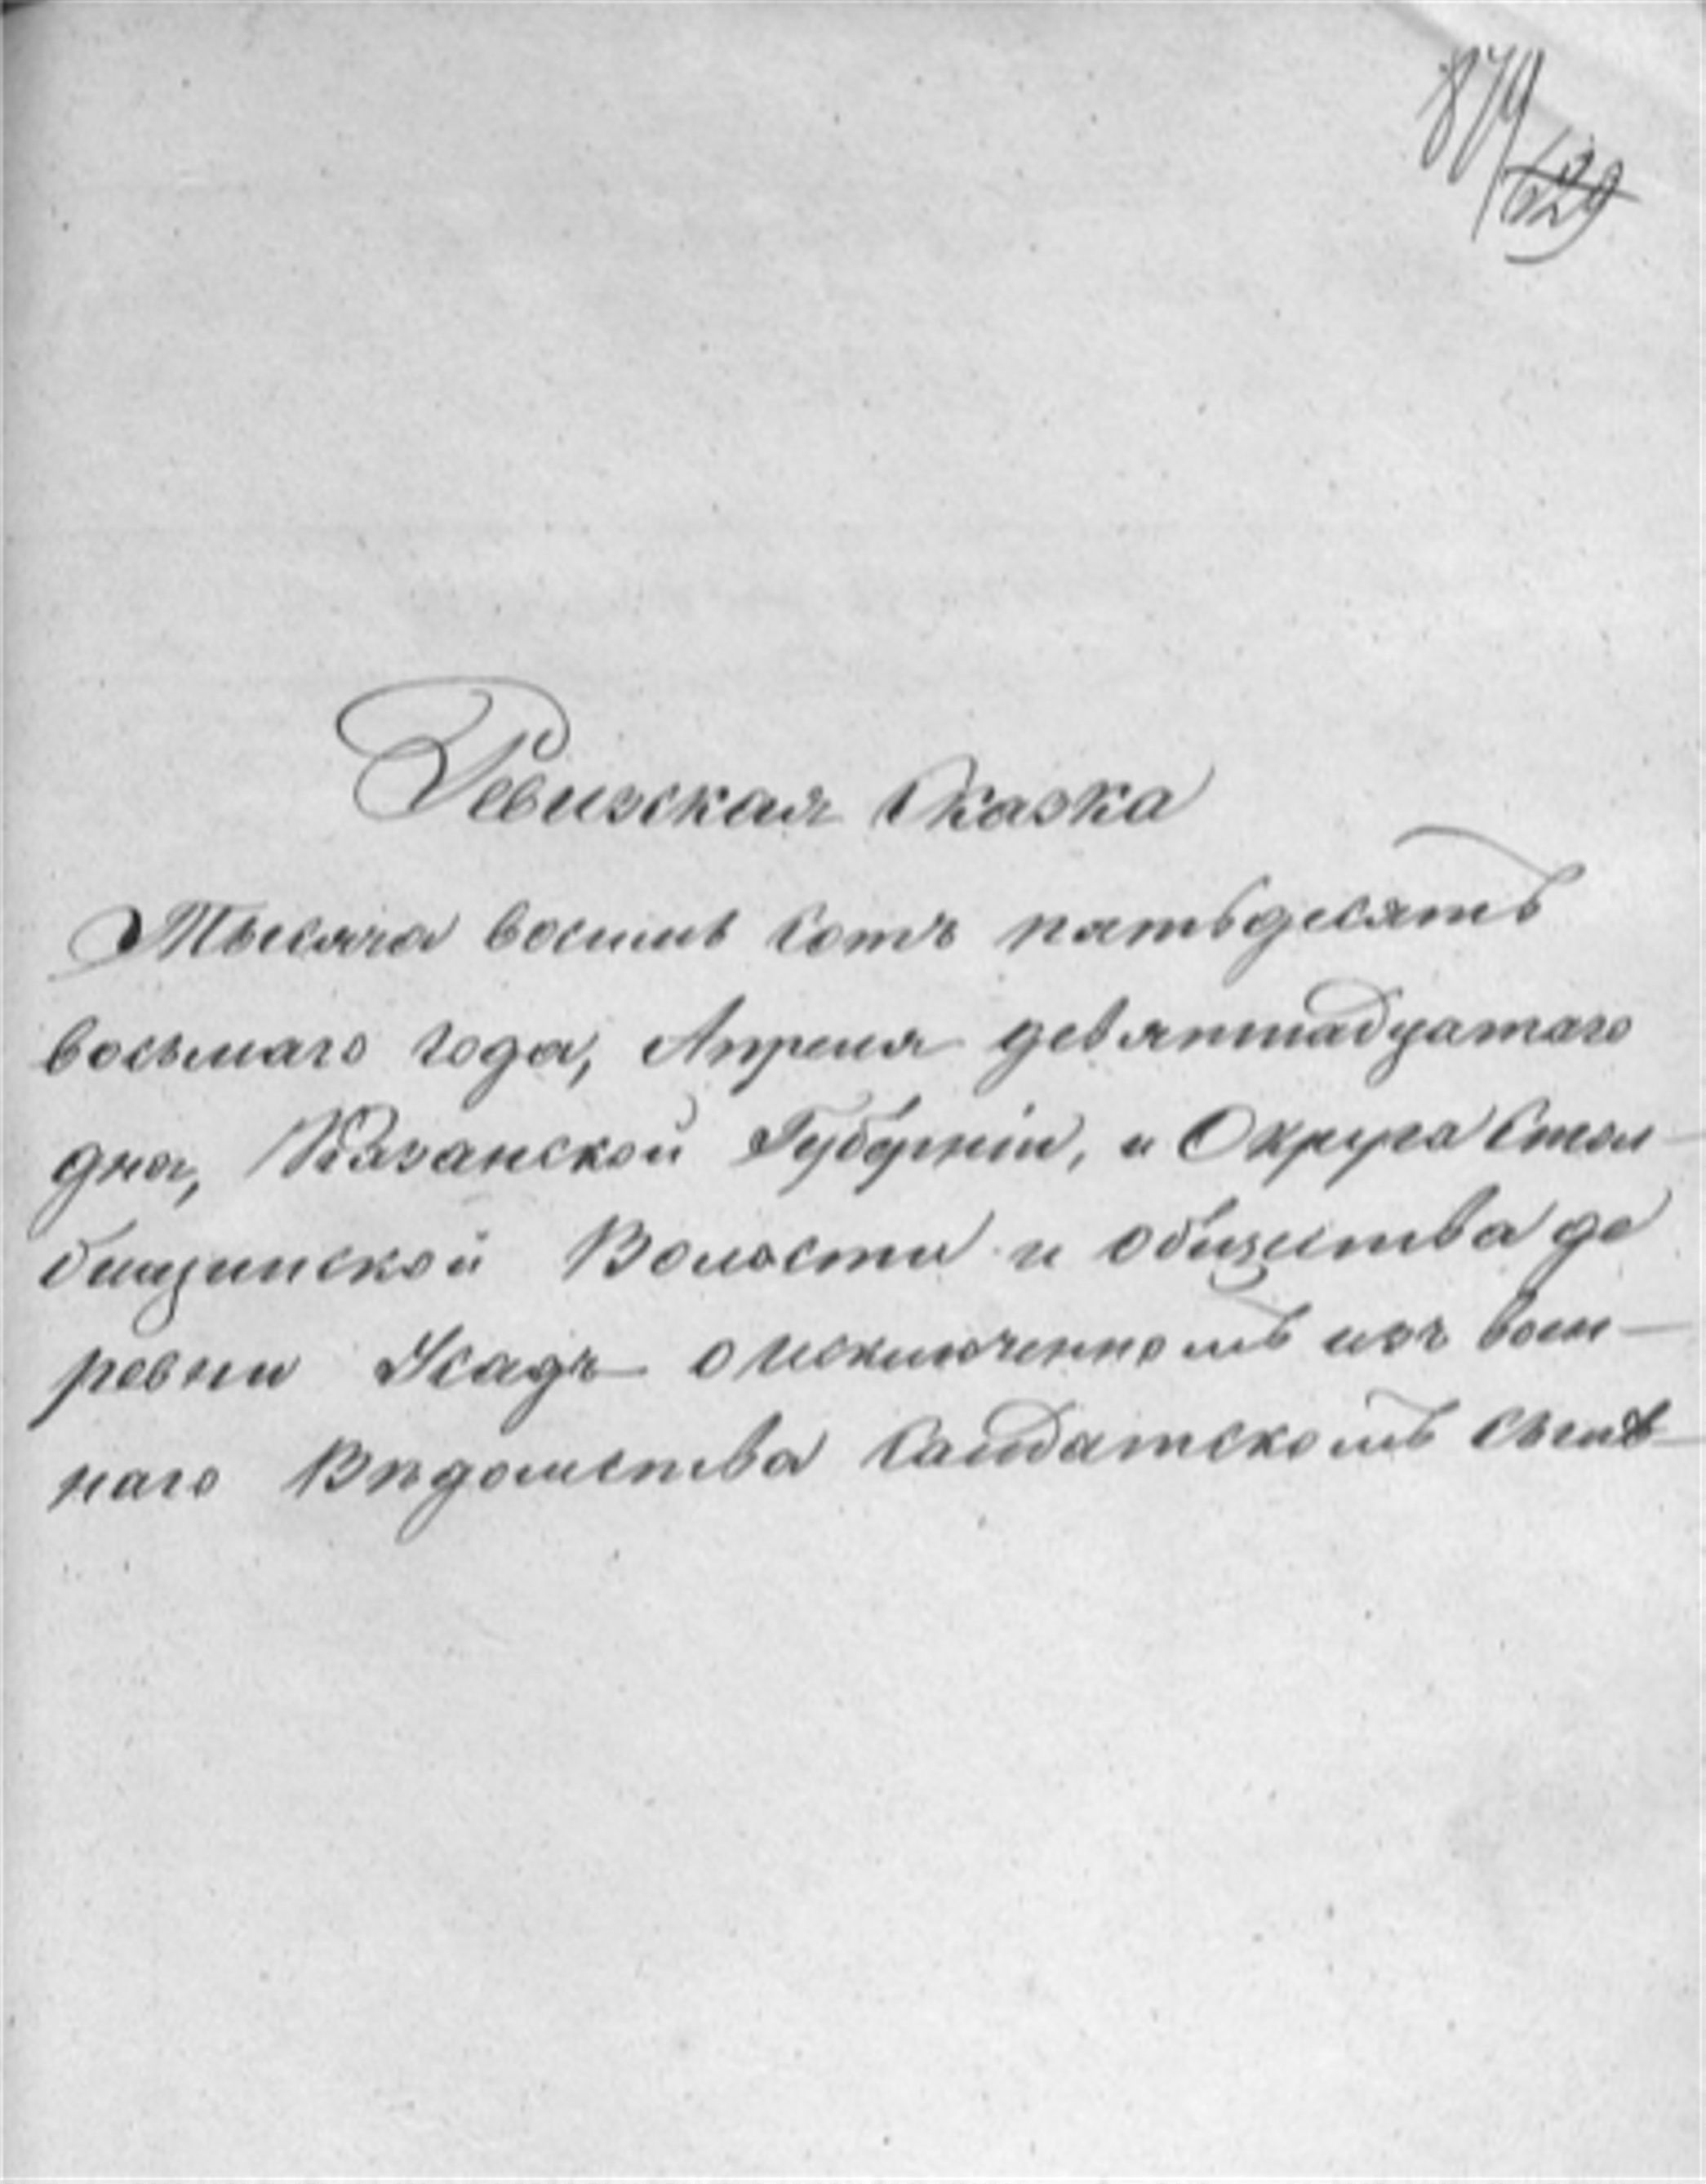 879
629
Ревизская Сказка
Тысяча восимь сотъ пятьдесятъ
восьмаго года, Апреля девятнадцатаго
дня, Казанской Губерніи, и Округа Стол-
бищинской Волости и общества де
ревни Усадъ о исключенномъ изъ воен-
наго Вѣдомства Салдатскомъ сынѣ-